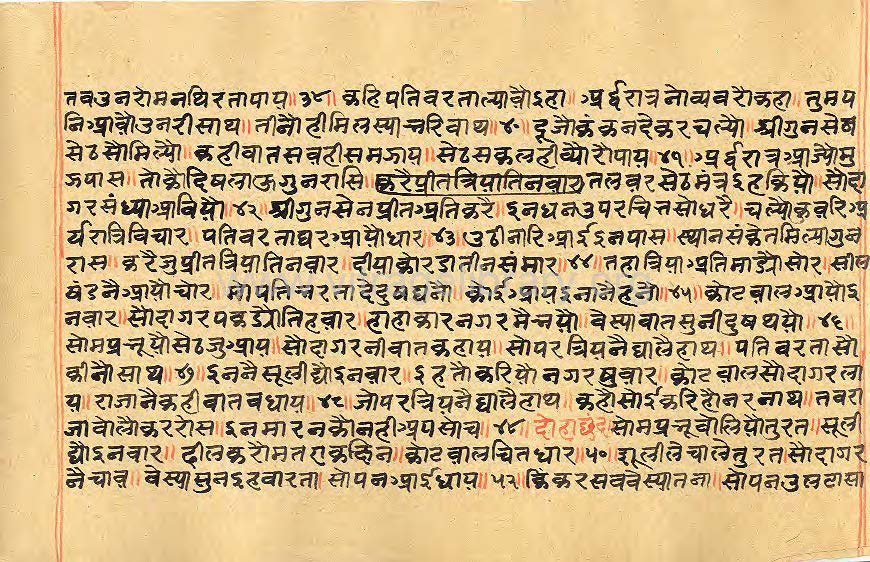 तवउनरोमनथिरतापाय॥३८॥ कहिपतिवरताल्यावोइहा॥ अर्द्धरात्रनोव्यवरोकहा॥ तुमप
निआवोउनरीसाथ॥ तीनोहीमिलस्याचरिवाथ॥४०॥ दूजोकंकनदेकरचल्यो॥ श्रीगुनसेन
सेठसोमिल्यो॥ कहीवातसवहीसमजाय॥ सेठसकलहीव्योरोपाय॥४१॥ अर्द्धरात्रआज्योमु
ऊपास॥ तोकोदिषलाऊगुनरासि॥ करैप्रीतत्रियातिनवार॥ तलवरसेठमंत्रइहकियो॥ सोदा
गरसंध्याआवियो॥४२॥ श्रीगुनसेनप्रीतअतिकरै॥ इनधनउपरचितसोधरै॥ चल्योकवरिअ
र्यरात्रिविचार॥ पतिवरताघरआयोधार॥४३॥ उठीनारिआईइनपास॥ स्थानसंकेतमिल्यागुन
रास॥ करैजुप्रीतत्रियातिनवार॥ दीयाकोरडातीनसंमार॥४४॥ तहात्रियाअतिमाड्योसोर॥ सील
षंडनैआयोचोर॥ मापतिचरताददुषघनो॥ कोईआयइनानैहनो॥४५॥ कोटवालआयोइ
नवार॥ सोदागरपकड्योतिहवार॥ हाहाकारनगरमैभयो॥ वेस्यावातसुनीदुषथयो॥४६॥
सोमप्रभूयोसेठजुआय॥ सोदागरनीवातकहाय॥ सोपरत्रियनैघालैहाथ॥ पतिवरतासो
कीनोसाथ॥४७॥ इननैसूलीद्योइनवार॥ इहतोकरियोनगरषुवार॥ कोटवालसोदागरला
य॥ राजानैकहीवातवधाय॥४८॥ जोपरत्रियनैघालैहाथ॥ कहोसोईकरिहोनरनाथ॥ तवरा
जावोल्योकररोस॥ इनमारनकोनहीअपसोच॥४९॥ दोहाछंद॥ सोमप्रभूवोलियोतुरत॥ सूली
द्योइनवार॥ ढीलकरोमतएकछिन॥ कोटवालचितधार॥५०॥ शूलीलेचालेतुरत॥ सोदागर
नैचाव॥ वेस्यासुनइहवारता॥ सोपनआईधाय॥५१॥ किंकरसववेस्यातना॥ सोपनउषठासा